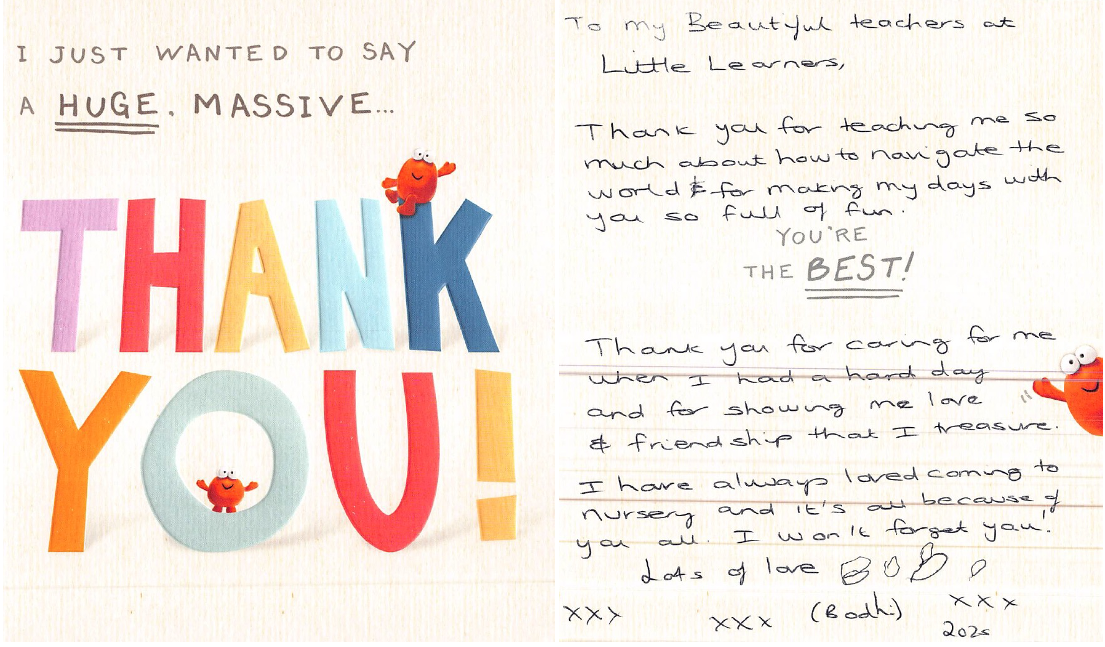 I JUST WANTED TO SAY
A HUGE, MASSIVE...
THANK
YOU!
To my Beautiful teachers at
Little Learners,
Thank you for teaching me so
much about how to navigate the
world & for making my days with
you so full of fun.
YOU'RE
THE BEST!
Thank you for caring for me
when I had a hard day
and for showing me love
& friendship that I treasure.
I have always loved coming to
nursery and it's all because of
you all. I won't forget you!
Lots of love
(Bodhi)
xxx xxx xxx
2025